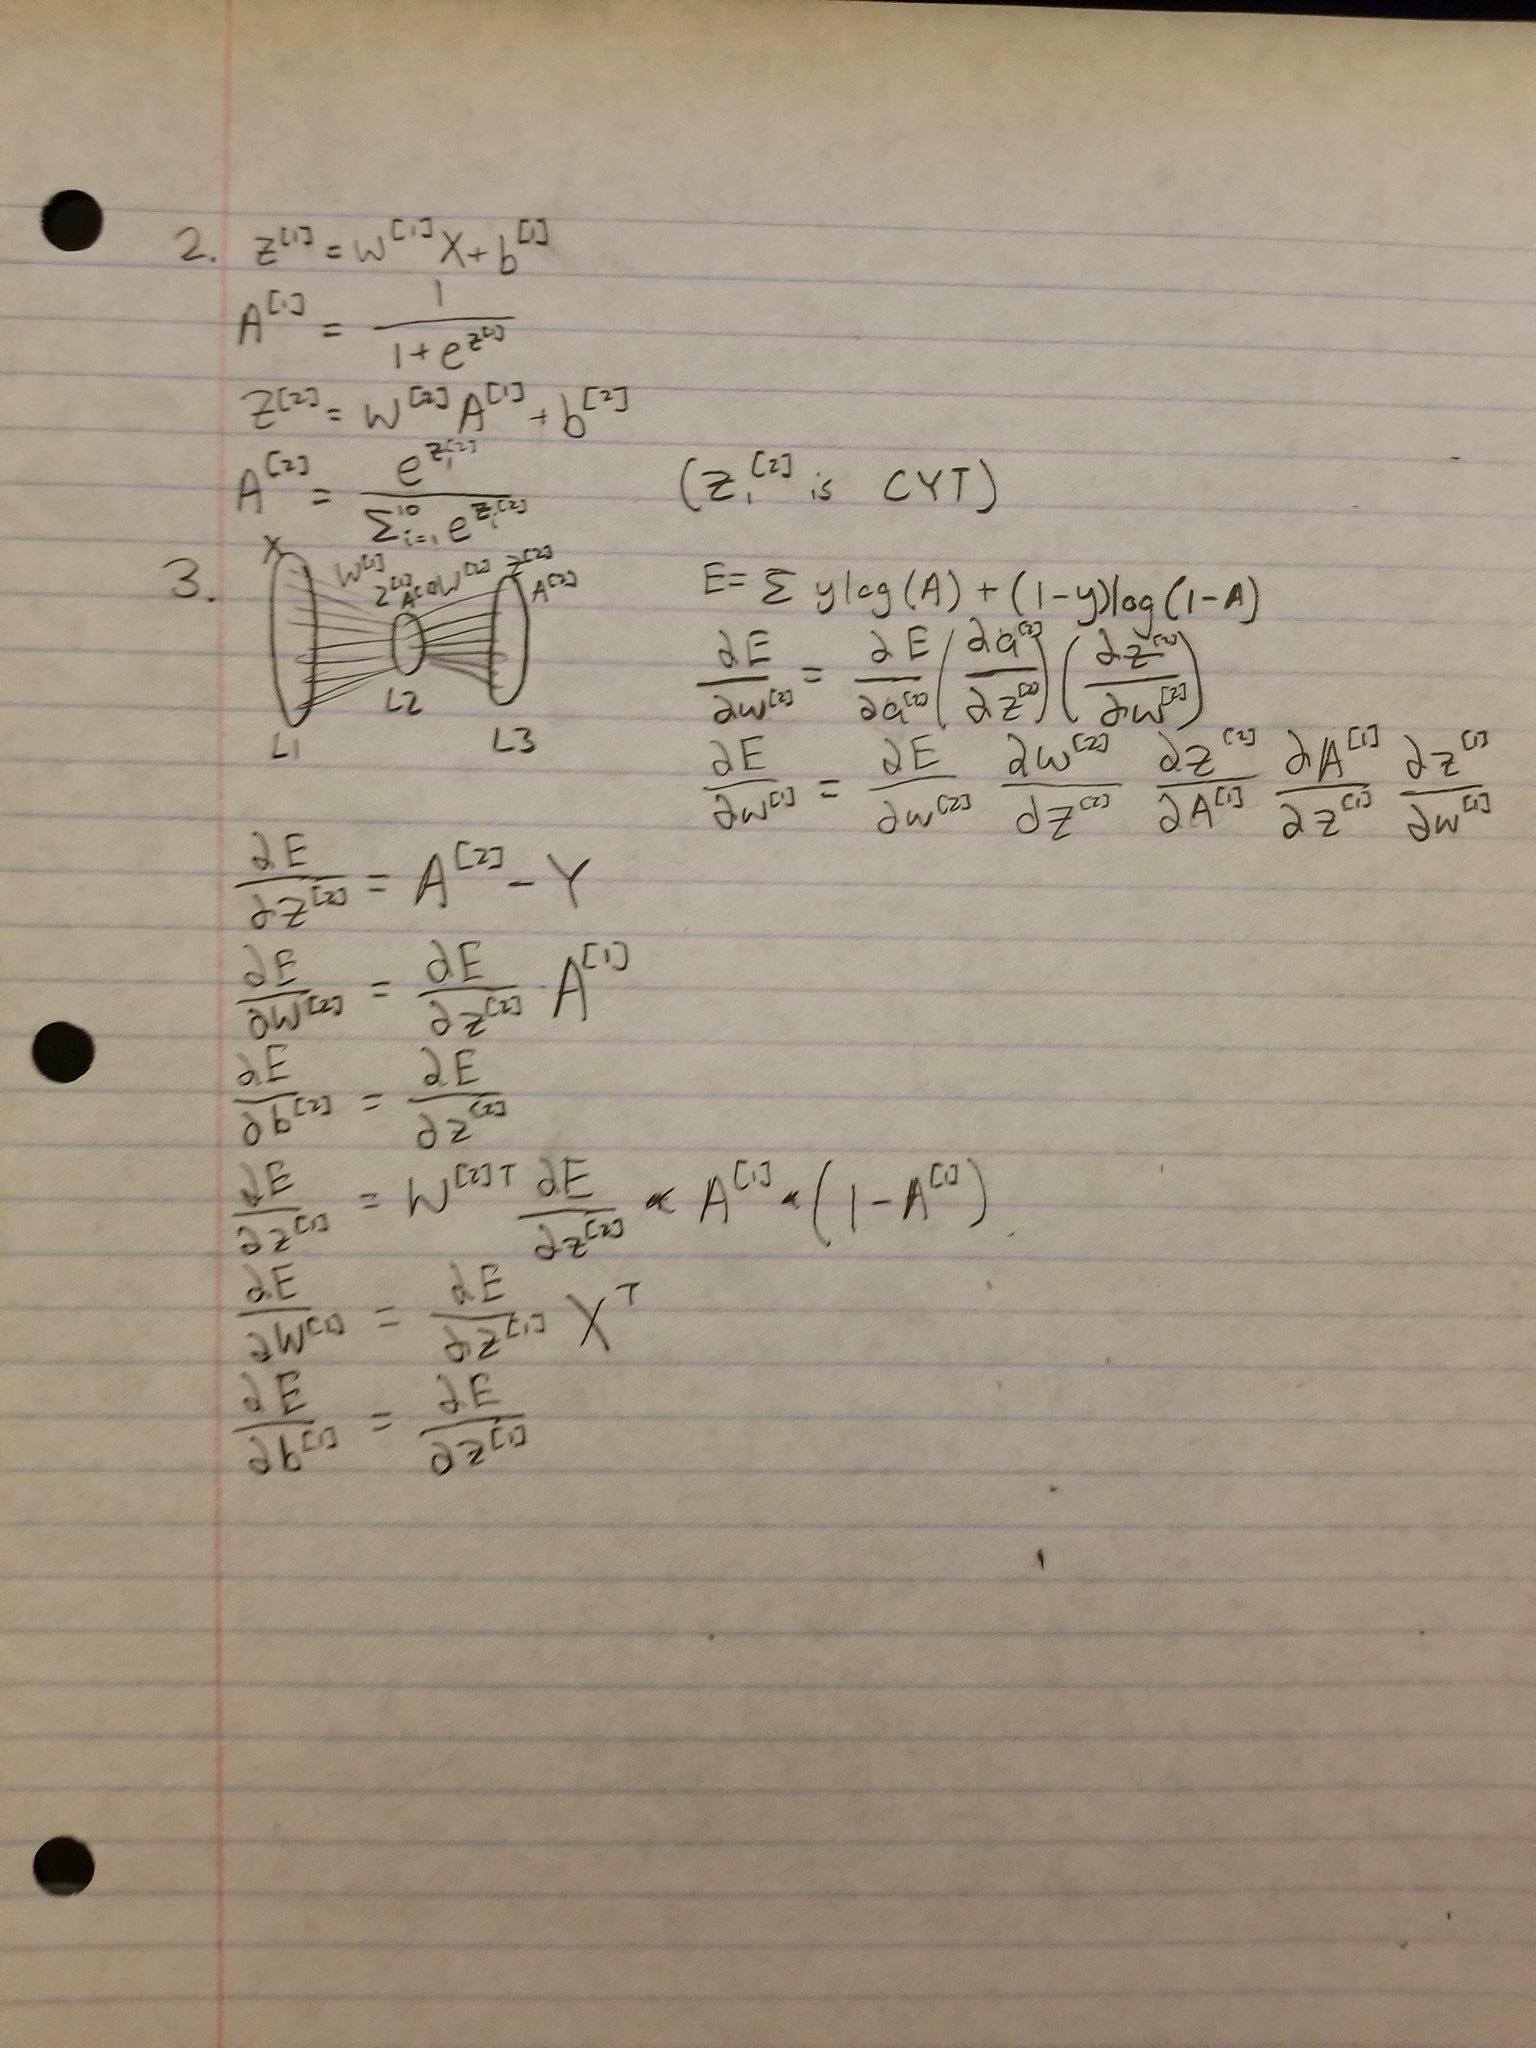 2. z^[1] = w^[1] X + b^[1]
A^[1] = 1 / (1 + e^z^[1])
Z^[2] = W^[2] A^[1] + b^[2]
A^[2] = e^z_i^[2] / Σ_{i=1}^{10} e^z_i^[2] (z_1^[2] is CYT)
3.
X W^[1] Z^[1] A^[1] W^[2] Z^[2] A^[2]
L1 L2 L3
E = Σ y log(A) + (1-y) log(1-A)
∂E/∂w^[2] = ∂E/∂a^[2] (∂a^[2]/∂z^[2]) (∂z^[2]/∂w^[2])
∂E/∂w^[1] = ∂E/∂w^[2] ∂w^[2]/∂z^[2] ∂z^[2]/∂A^[1] ∂A^[1]/∂z^[1] ∂z^[1]/∂w^[1]
∂E/∂z^[2] = A^[2] - Y
∂E/∂W^[2] = ∂E/∂z^[2] · A^[1]
∂E/∂b^[2] = ∂E/∂z^[2]
∂E/∂z^[1] = W^[2]T ∂E/∂z^[2] * A^[1] * (1 - A^[1])
∂E/∂W^[1] = ∂E/∂z^[1] X^T
∂E/∂b^[1] = ∂E/∂z^[1]